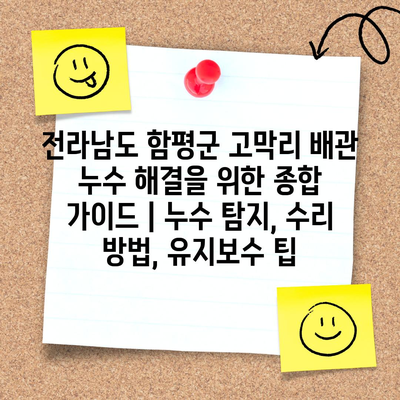 전라남도 함평군 고막리 배관
누수 해결을 위한 종합
가이드 | 누수 탐지, 수리
방법, 유지보수 팁